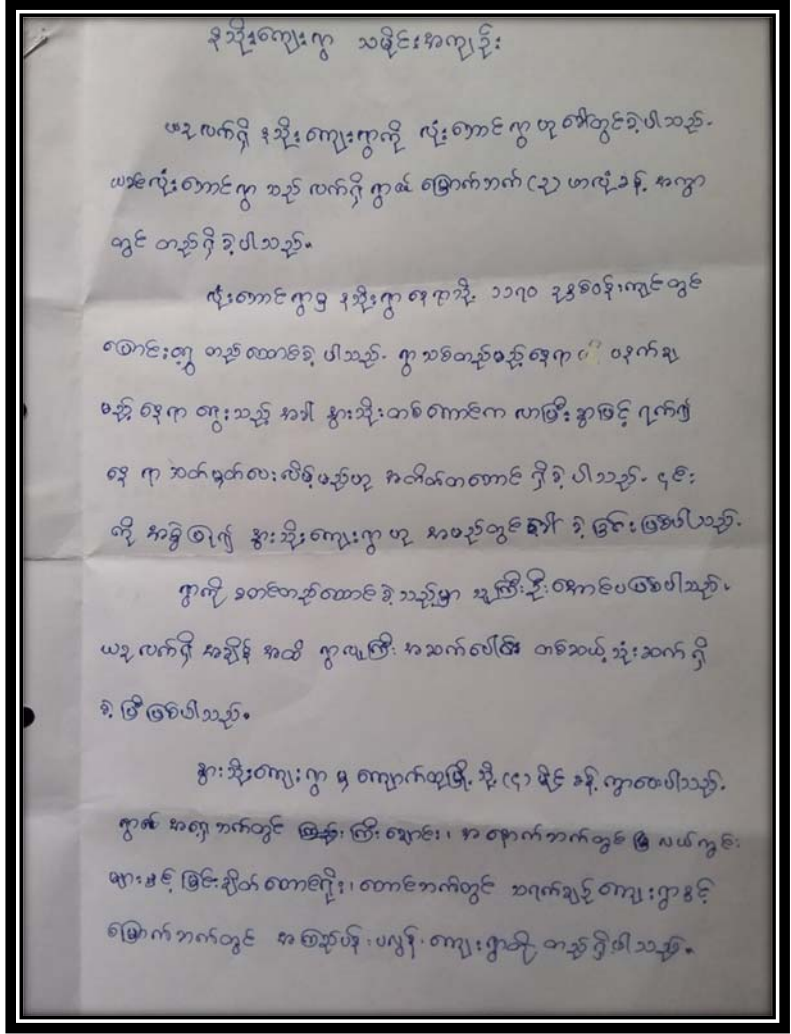 နသိုးကျေးရွာ သမိုင်းအကျဉ်း
ယခုလက်ရှိ နသိုးကျေးရွာကို လုံးတောင်ရွာ ဟု ခေါ်တွင်ခဲ့ပါသည်.
ယခင်လုံးတောင်ရွာ သည် လက်ရှိရွာ၏ မြောက်ဘက် (၃) ဖာလုံခန့် အကွာ
တွင် တည်ရှိခဲ့ပါသည်။
လုံးတောင်ရွာမှ နသိုးရွာနေရာသို့ ၁၁၇၀ ခုနှစ်ဝန်းကျင်တွင်
ပြောင်းရွှေ့ တည်ထောင်ခဲ့ပါသည်. ရွာသစ်တည်မည့်နေရာ ပန္နက်ချ
မည့်နေရာ ရွေးသည့် အခါ နွားသိုးတစ်ကောင်က လာပြီး ခွာဖြင့် ရက်၍
နေရာသတ်မှတ်ပေးလိမ့်မည်ဟု အတိတ်တဘောင် ရှိခဲ့ပါသည်. ၎င်း
ကို အစွဲပြု၍ နွားသိုးကျေးရွာ ဟု အမည်တွင်ခေါ်ခဲ့ခြင်းဖြစ်ပါသည်.
ရွာကို စတင်တည်ထောင်ခဲ့သည့်မှာ သူကြီးဦးအောင်ပဖြစ်ပါသည်.
ယခုလက်ရှိအချိန်အထိ ရွာလူကြီး အဆက်ပေါင်း တစ်ဆယ့်သုံးဆက် ရှိ
ခဲ့ပြီဖြစ်ပါသည်။
နွားသိုးကျေးရွာမှ ကျောက်ထုမြို့သို့ (၄) မိုင်ခန့် ကွာဝေးပါသည်.
ရွာ၏ အရှေ့ဘက်တွင် ကြီးချောင်း၊ အနောက်ဘက်တွင် လယ်ကွင်း
များနှင့် မြင်းချိတ်တောင်ရိုး၊ တောင်ဘက်တွင် သရက်ချဉ်ကျေးရွာနှင့်
မြောက်ဘက်တွင် အကြည်ပန်းပလွန်းကျေးရွာတို့ တည်ရှိပါသည်။